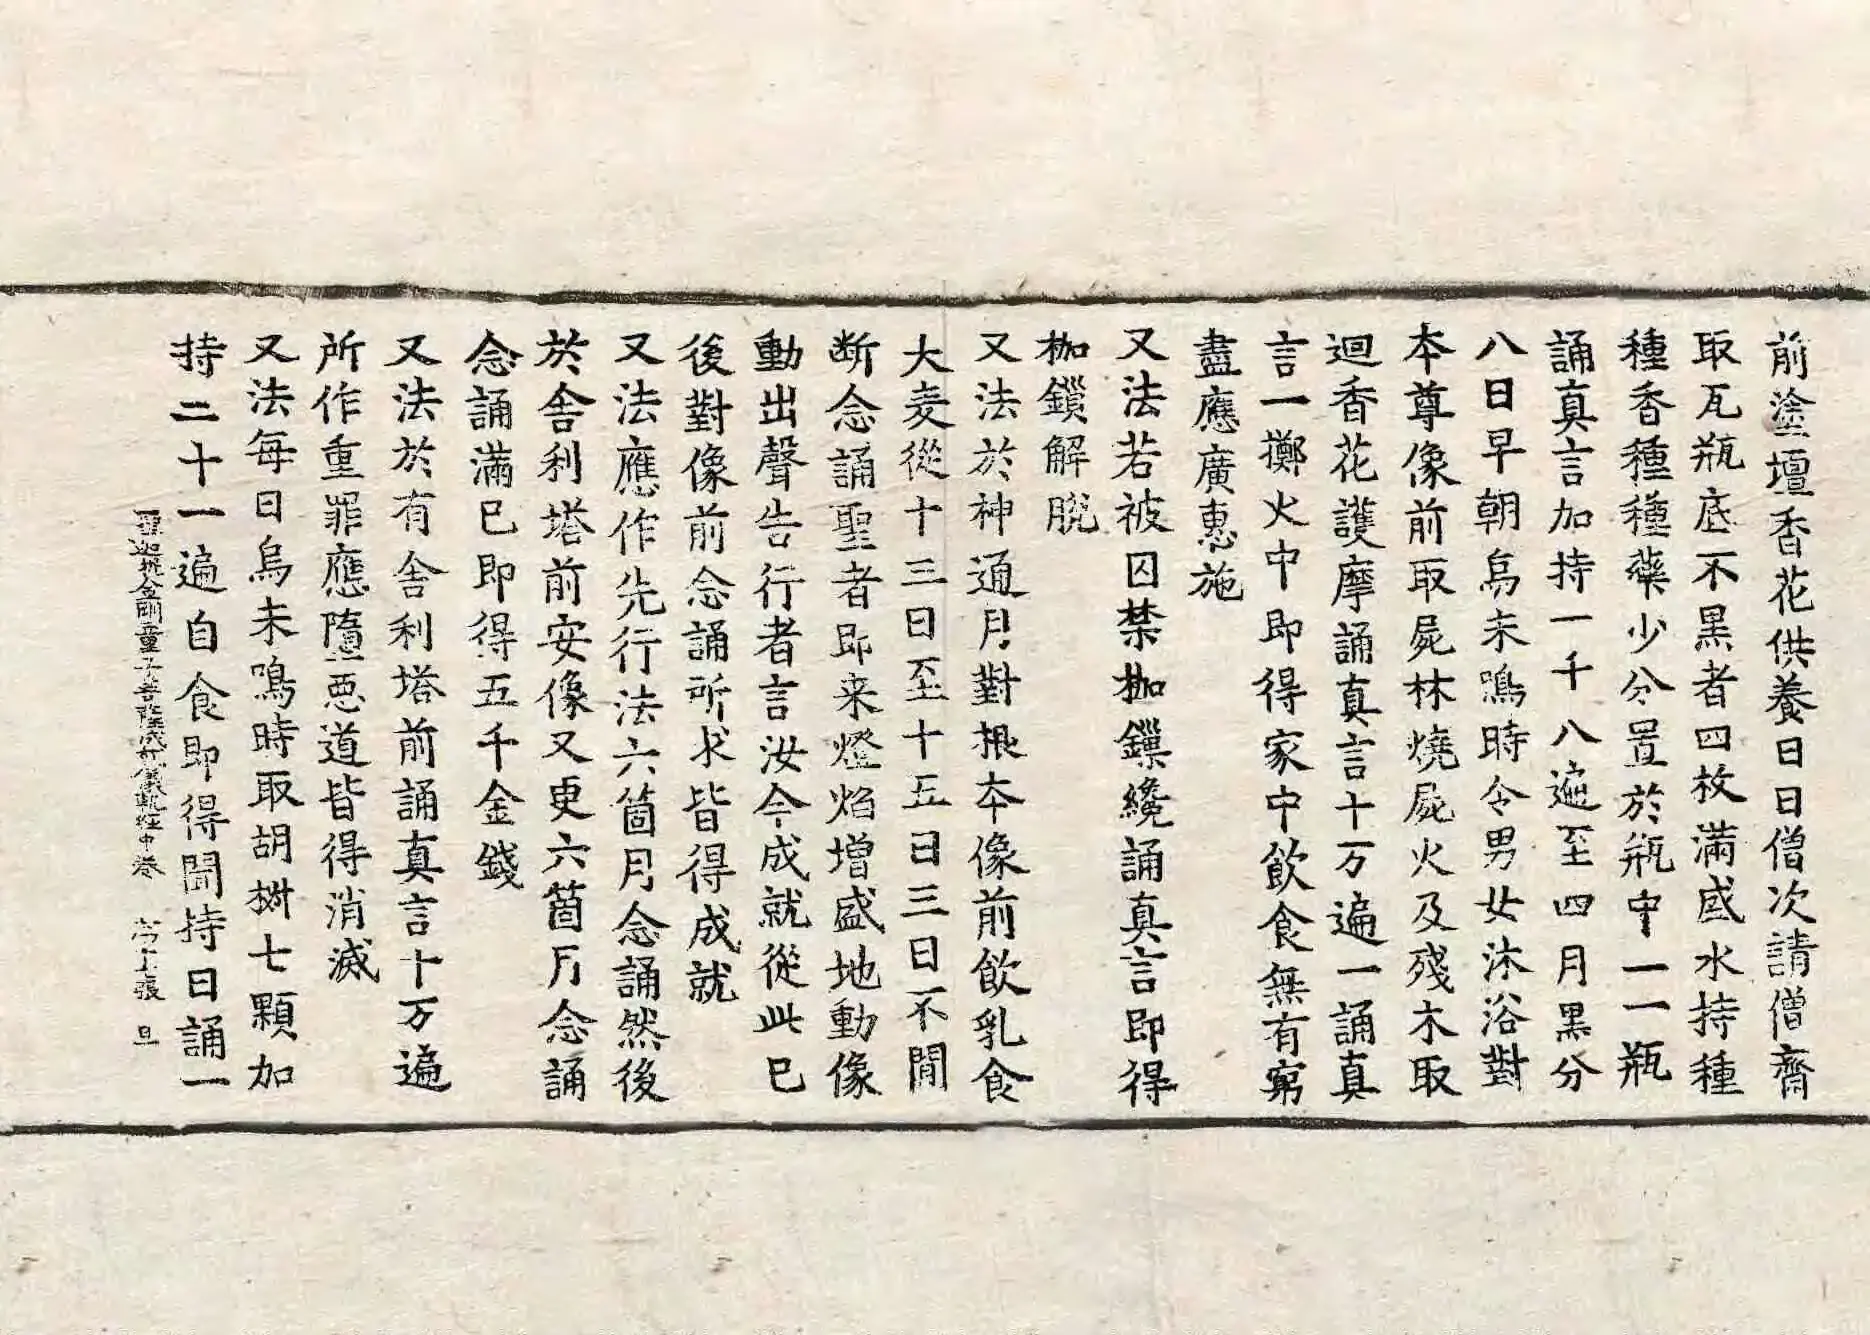 前塗壇香花供養日日僧次請僧齊
取瓦瓶底不黒者四枚滿盛水持種
種香種種藥少分置於瓶中一一瓶
誦真言加持一千八遍至四月黒分
八日早朝烏未鳴時令男女沐浴對
本尊像前取屍林燒屍火及殘木取
迴香花護摩誦真言十万遍一誦真
言一擲火中即得家中飲食無有窮
盡應廣惠施
又法若被囚禁枷鏁纔誦真言即得
枷鎖解脫
又法於神通月對根本像前飲乳食
大麦從十三日至十五日三日不閒
断念誦聖者即来燈焰增盛地動像
動出聲告行者言汝今成就從此已
後對像前念誦所求皆得成就
又法應作先行法六箇月念誦然後
於舎利塔前安像又更六箇月念誦
念誦滿已即得五千金錢
又法於有舎利塔前誦真言十万遍
所作重罪應墮惡道皆得消滅
又法每日烏未鳴時取胡椒七顆加
持二十一遍自食即得聞持日誦一
金剛童子菩薩成就儀軌經中卷 張 旦